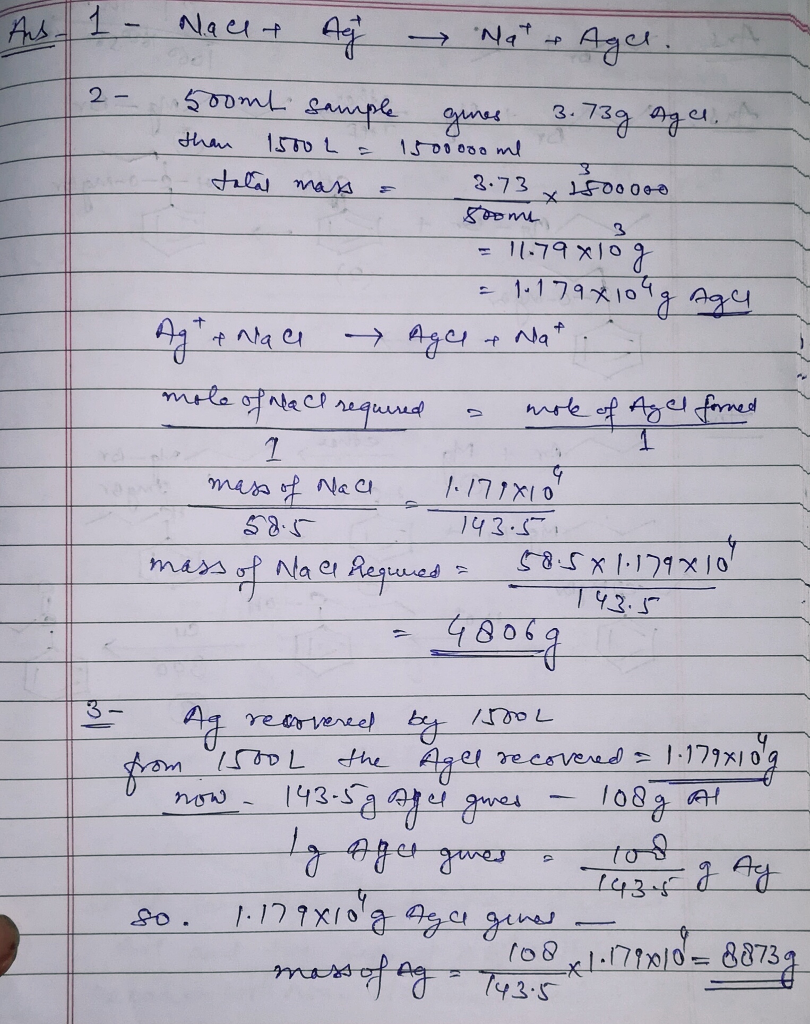 Ans - 1 - NaCl + Ag⁺ → Na⁺ + AgCl.
2 - 500ml sample gives 3.73g AgCl.
than 1500 L = 1500000 ml
total mass = 3.73 / 500ml × 1500000 3
= 11.79 × 10³ g
= 1.179 × 10⁴ g AgCl
Ag⁺ + NaCl → AgCl + Na⁺.
mole of NaCl required / 1 = mole of AgCl formed / 1
mass of NaCl / 58.5 = 1.179 × 10⁴ / 143.5
mass of NaCl Required = 58.5 × 1.179 × 10⁴ / 143.5
= 4806g
3 - Ag recovered by 1500L
from 1500L the AgCl recovered = 1.179×10⁴g
now - 143.5g AgCl gives - 108g Al
1g AgCl gives = 108 / 143.5 g Ag
so. 1.179×10⁴g AgCl gives —
mass of Ag = 108 / 143.5 × 1.179×10⁴ = 8873g